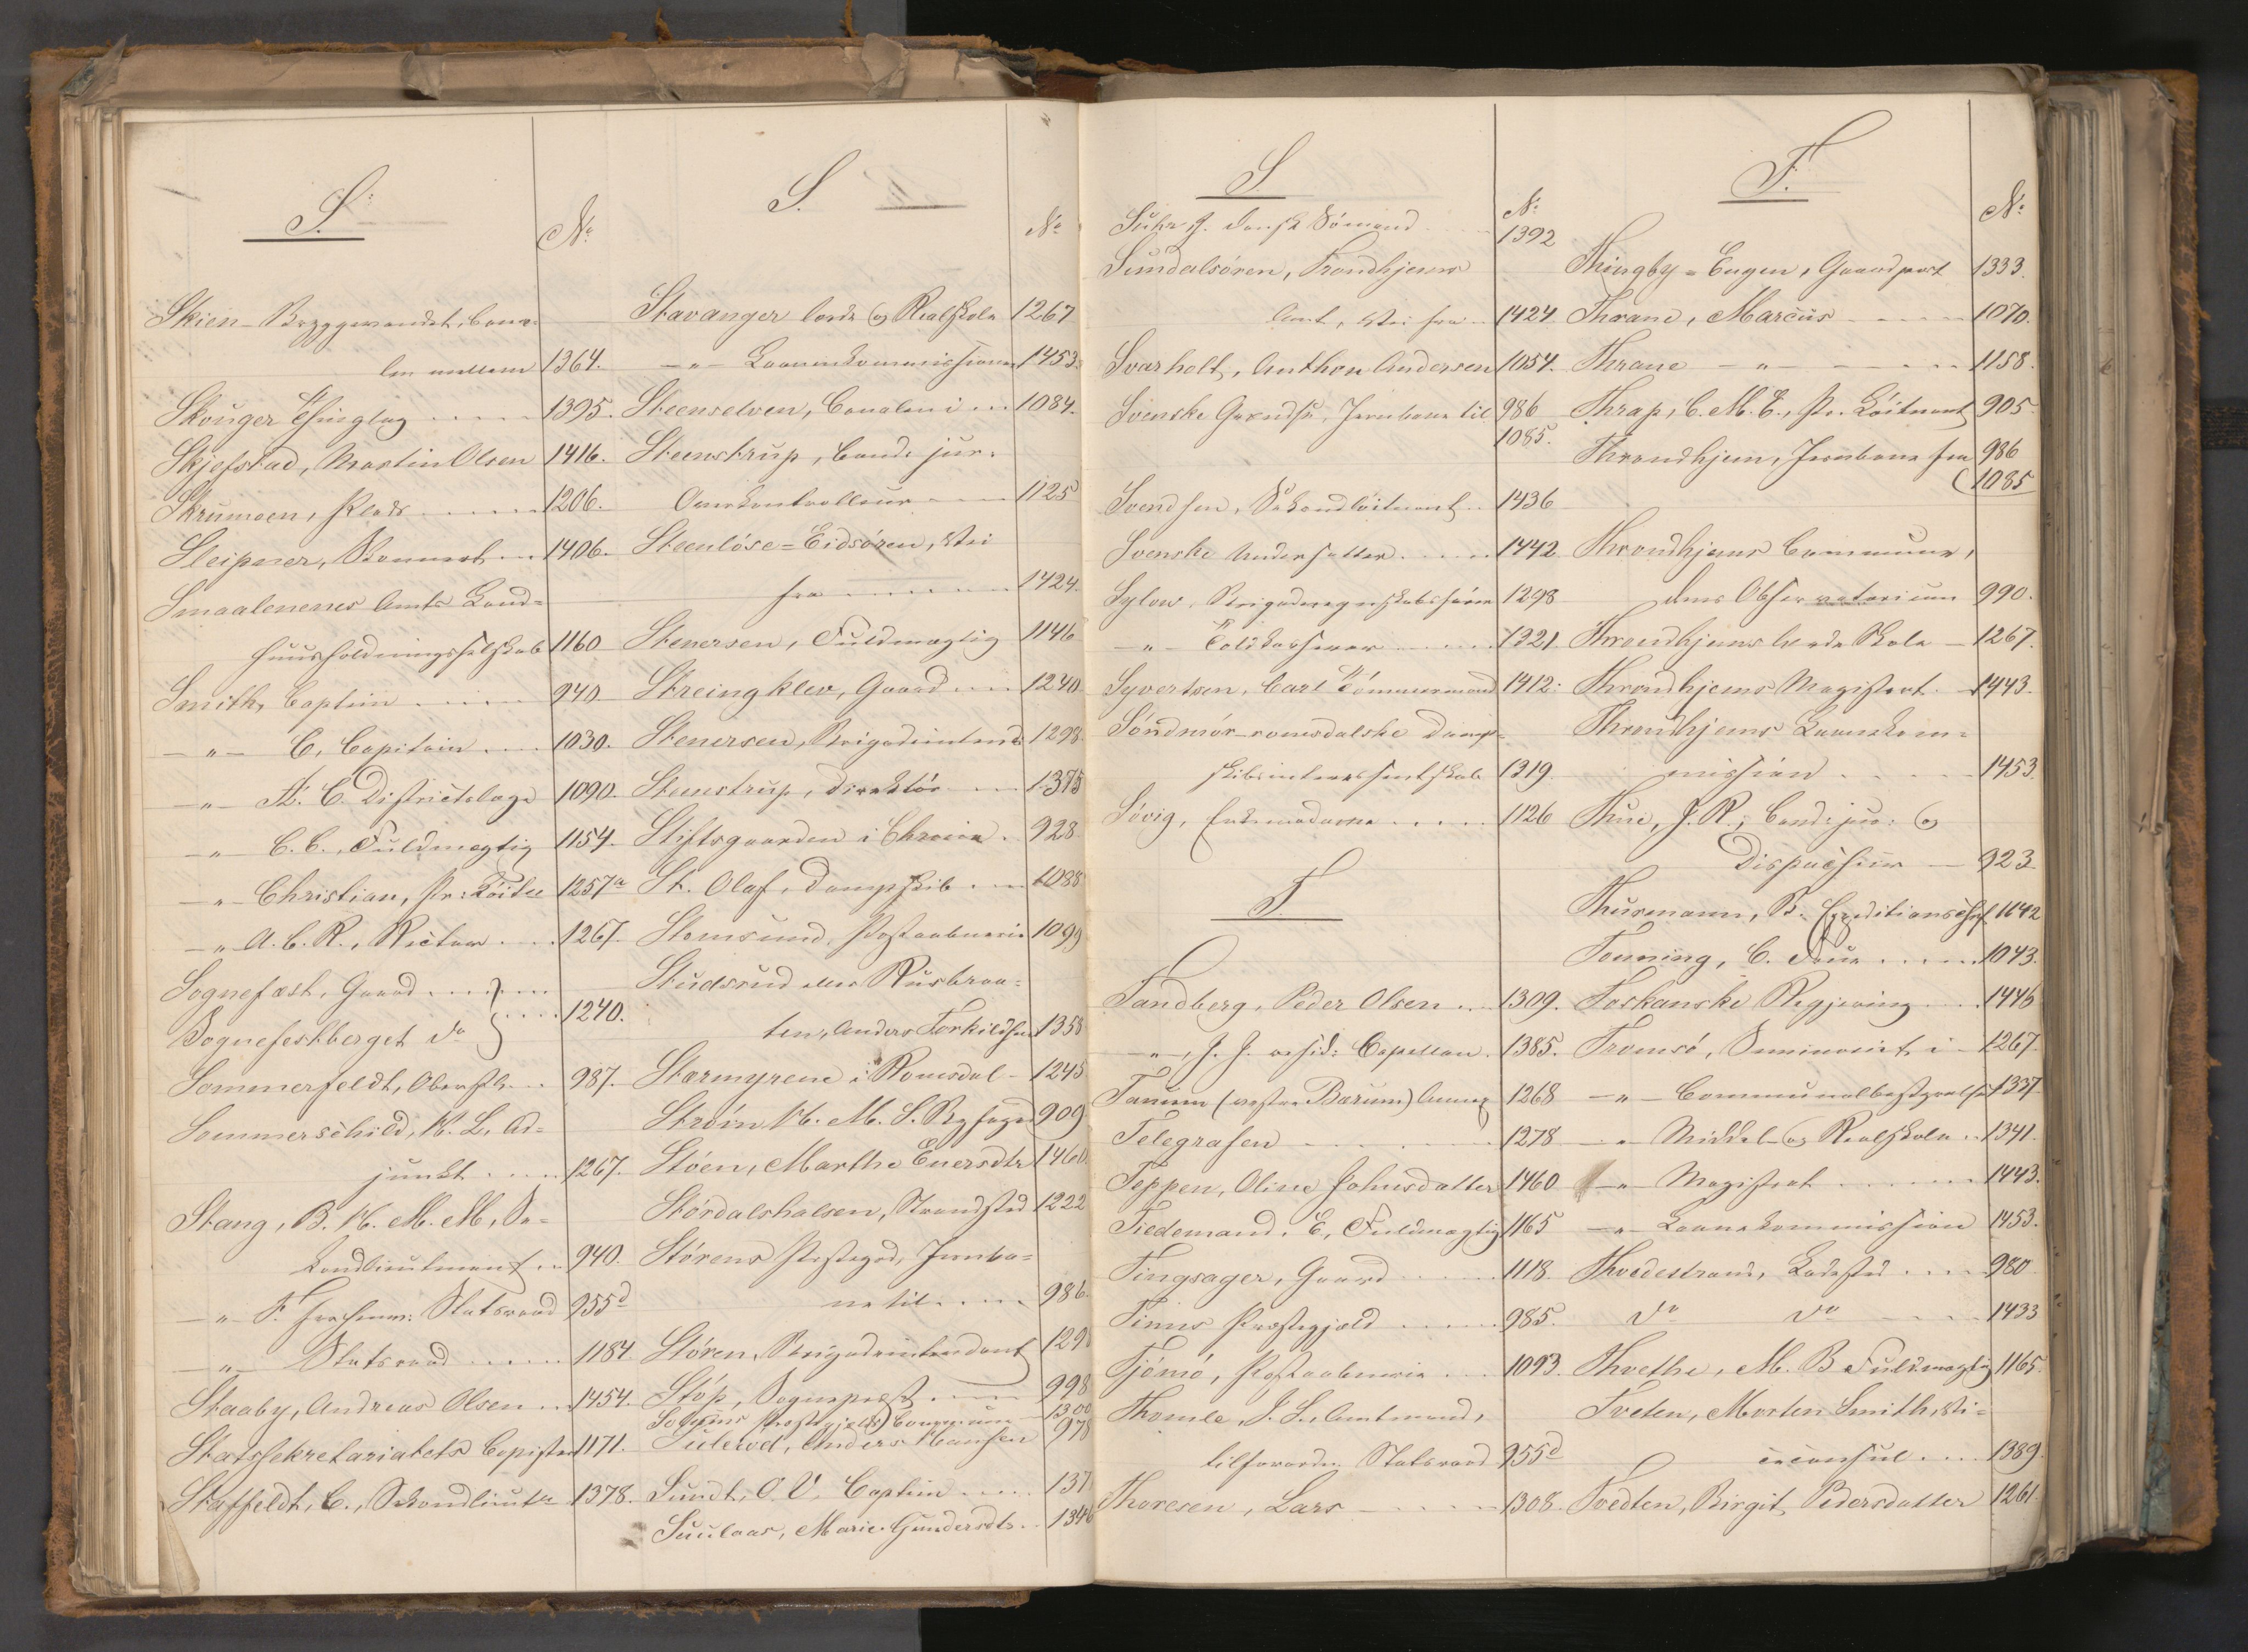 S.
No
Skien-Bryggevandet, Cana-
len mellem 1364.
Skouger Thinglag 1395.
Skjefstad, Martin Olsen 1416.
Skrumoen, Plads 1206.
Sleipner, Skonnert 1406.
Smaalenenes Amts Land-
huusholdningsselskab 1160
Smith, Captein 940
-"- C, Capitain 1030.
-"- A. C. Districtslæge 1090.
-"- C. C., Fuldmægtig 1154.
-"- Christian, Pr: Löitn 1257a
-"- A. C. R., Rector 1267.
Sognefæst, Gaard
Sognefestberget do 1240.
Sommerfeldt, Oberstl. 987.
Sommerschild, K. L. Ad-
junkt 1267.
Stang, B. K. M. M., Se-
kondlieutenant 940.
-"- F. Statsraad 955d
-"- Statsraad 1184
Staaby, Andreas Olsen 1454.
Statssekretariatets Copister 1171.
Staffeldt, C., Sekondlieutn 1378.
S.
No
Stavanger lærde og Realskole 1267
-"- Havnekommission 1453.
Steenselven, Canalen i 1084.
Steenstrup, Cand: jur.
1125
Steenlöse=Eidsören, Vei
fra 1424.
Stenersen, Fuldmægtig 1146
Streingklev, Gaard 1240.
Stenersen, Brigadeintend 1298.
Steenstrup, Direktör 1375
Stiftsgaarden i Chr.ania 928.
St. Olaf, Dampskib 1088
Stemsund, Postaabneri 1099
Studsrud eller Rusbraa-
ten, Anders Torkildsen 1358
Stormyrene i Romsdal 1245
Ström H. M. S. Byfoged 909
Stöen, Marthe Enersdtr 1460
Stördalshalsen, Strandsted 1222
Störens Præstegd, Jernba-
ne til 986.
Stören, Brigadeintendant 129
Stöp, Sogneprest 998
Præstegjelds Commune 1300
Sulerod, Anders Hansen 978
Sundt, O. V. Captein 137
Suulaas, Marie Gundersdtr. 1346
S
No
Suhr J. dansk Sömand 1392
Sundalsören, Trondhjems
Amt, Vei fra 1424.
Svarholt, Anthon Andersen 1054.
Svenske Grændse, Jernbane til 986
1085.
Svendsen, Sekondlöitnant 1436
Svenske Undersatter 1442
Sylow, 1298
-"- Toldkasserer 1321.
Syvertsen, Carl Tömmermand 1412:
Söndmör-romsdalske Damp-
skibsinteressentskab 1319
Sövig, Enkemadame 1126
T.
Tandberg, Peder Olsen 1309.
-"-, J. J. resid: Capellan 1385.
Tanum (vestre Bærum) Annex 1268
Telegrafen 1278
Teppen, Oline Johnsdatter 1460
Tiedemand, E, Fuldmægtig 1165
Tingsager, Gaard 1118.
Tinns Præstegjæld 985.
Tjömö, Postaabneri 1093.
Thomle, J. L., Amtmand,
tilforordn. Statsraad 955d
Thoresen, Lars 1308.
T.
No
Thingby=Engen, Gaardpart 1333.
Thrane, Marcus 1070.
Thrane -"- 1158.
Thrap, C. M. E., Pr. Löitnant 905.
Throndhjem, Jernbane fra 986
1085
Throndhjems Commune,
dens Observatorium 990.
Throndhjems lærde Skole 1267.
Throndhjems Magistrat 1443.
Throndhjems Havnekom-
mission 1453.
Thue, J. R., Cand: jur: og
Dispacheur 923.
Thurmann, B. Expeditionschef 1142
Tönning, C. Frue 1043.
Toskanske Regjering 1446
Tromsö, Seminariet i 1267.
-"- Communalbestyrelse 1337
-"- Middel- og Realskole 1341.
-"- Magistrat 1443.
-"- Havnekommission 1453.
Thvedestrand, Ladested 980
do do 1433
Thvethe, M. B Fuldmægtig 1165.
Tveten, Morten Smith, Vi-
ceconsul 1389.
Tvedten, Birgit Pedersdatter 1261.